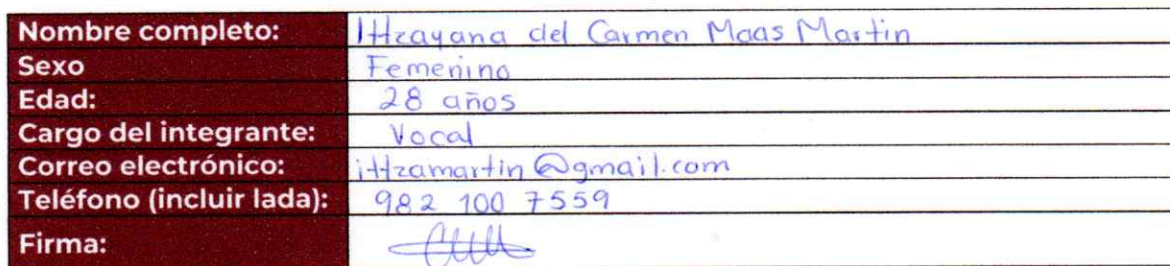 Nombre completo: Ittzayana del Carmen Maas Martin
Sexo Femenino
Edad: 28 años
Cargo del integrante: Vocal
Correo electrónico: ittzamartin@gmail.com
Teléfono (incluir lada): 982 100 7559
Firma: